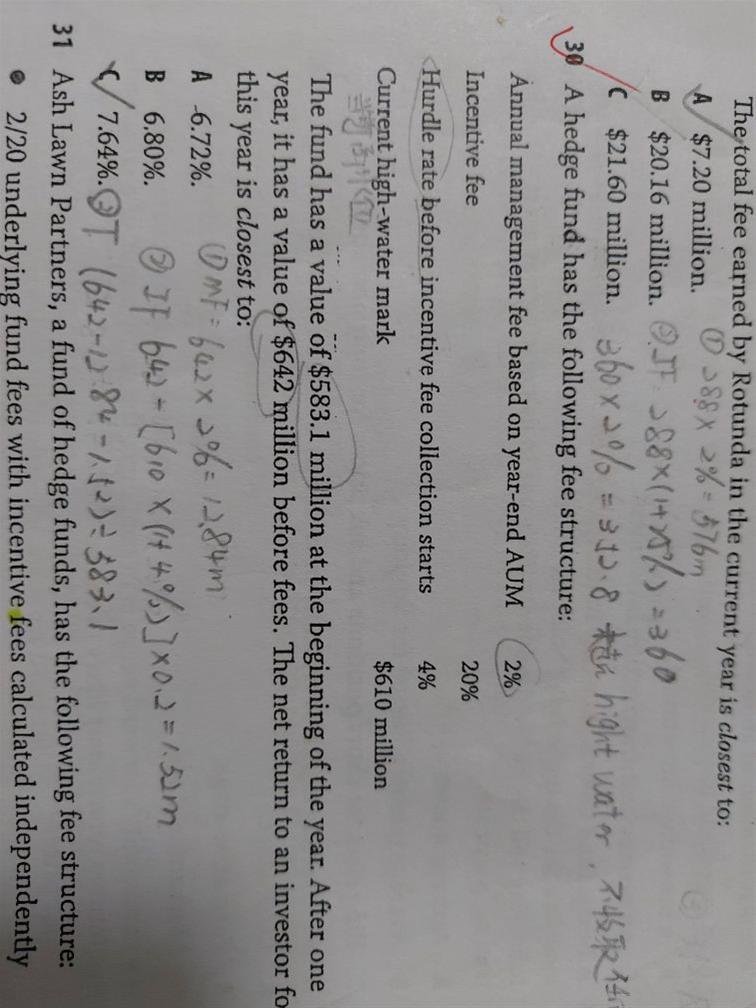 The total fee earned by Rotunda in the current year is closest to:
A $7.20 million. ① 288 × 2% = 576m
B $20.16 million. ② IF 288×(1+25%) = 360
C $21.60 million. 360 × 2% = 352.8 hight water,
30 A hedge fund has the following fee structure:
Annual management fee based on year-end AUM 2%
Incentive fee 20%
Hurdle rate before incentive fee collection starts 4%
Current high-water mark $610 million
The fund has a value of $583.1 million at the beginning of the year. After one
year, it has a value of $642 million before fees. The net return to an investor fo
this year is closest to:
A -6.72%. ① MF = 642 × 2% = 12.84m
B 6.80%. ② IF 642 - [610 × (1+4%)] × 0.2 = 1.52m
C 7.64%. ③ T (642-12.84-1.52)÷583.1
31 Ash Lawn Partners, a fund of hedge funds, has the following fee structure:
● 2/20 underlying fund fees with incentive fees calculated independently